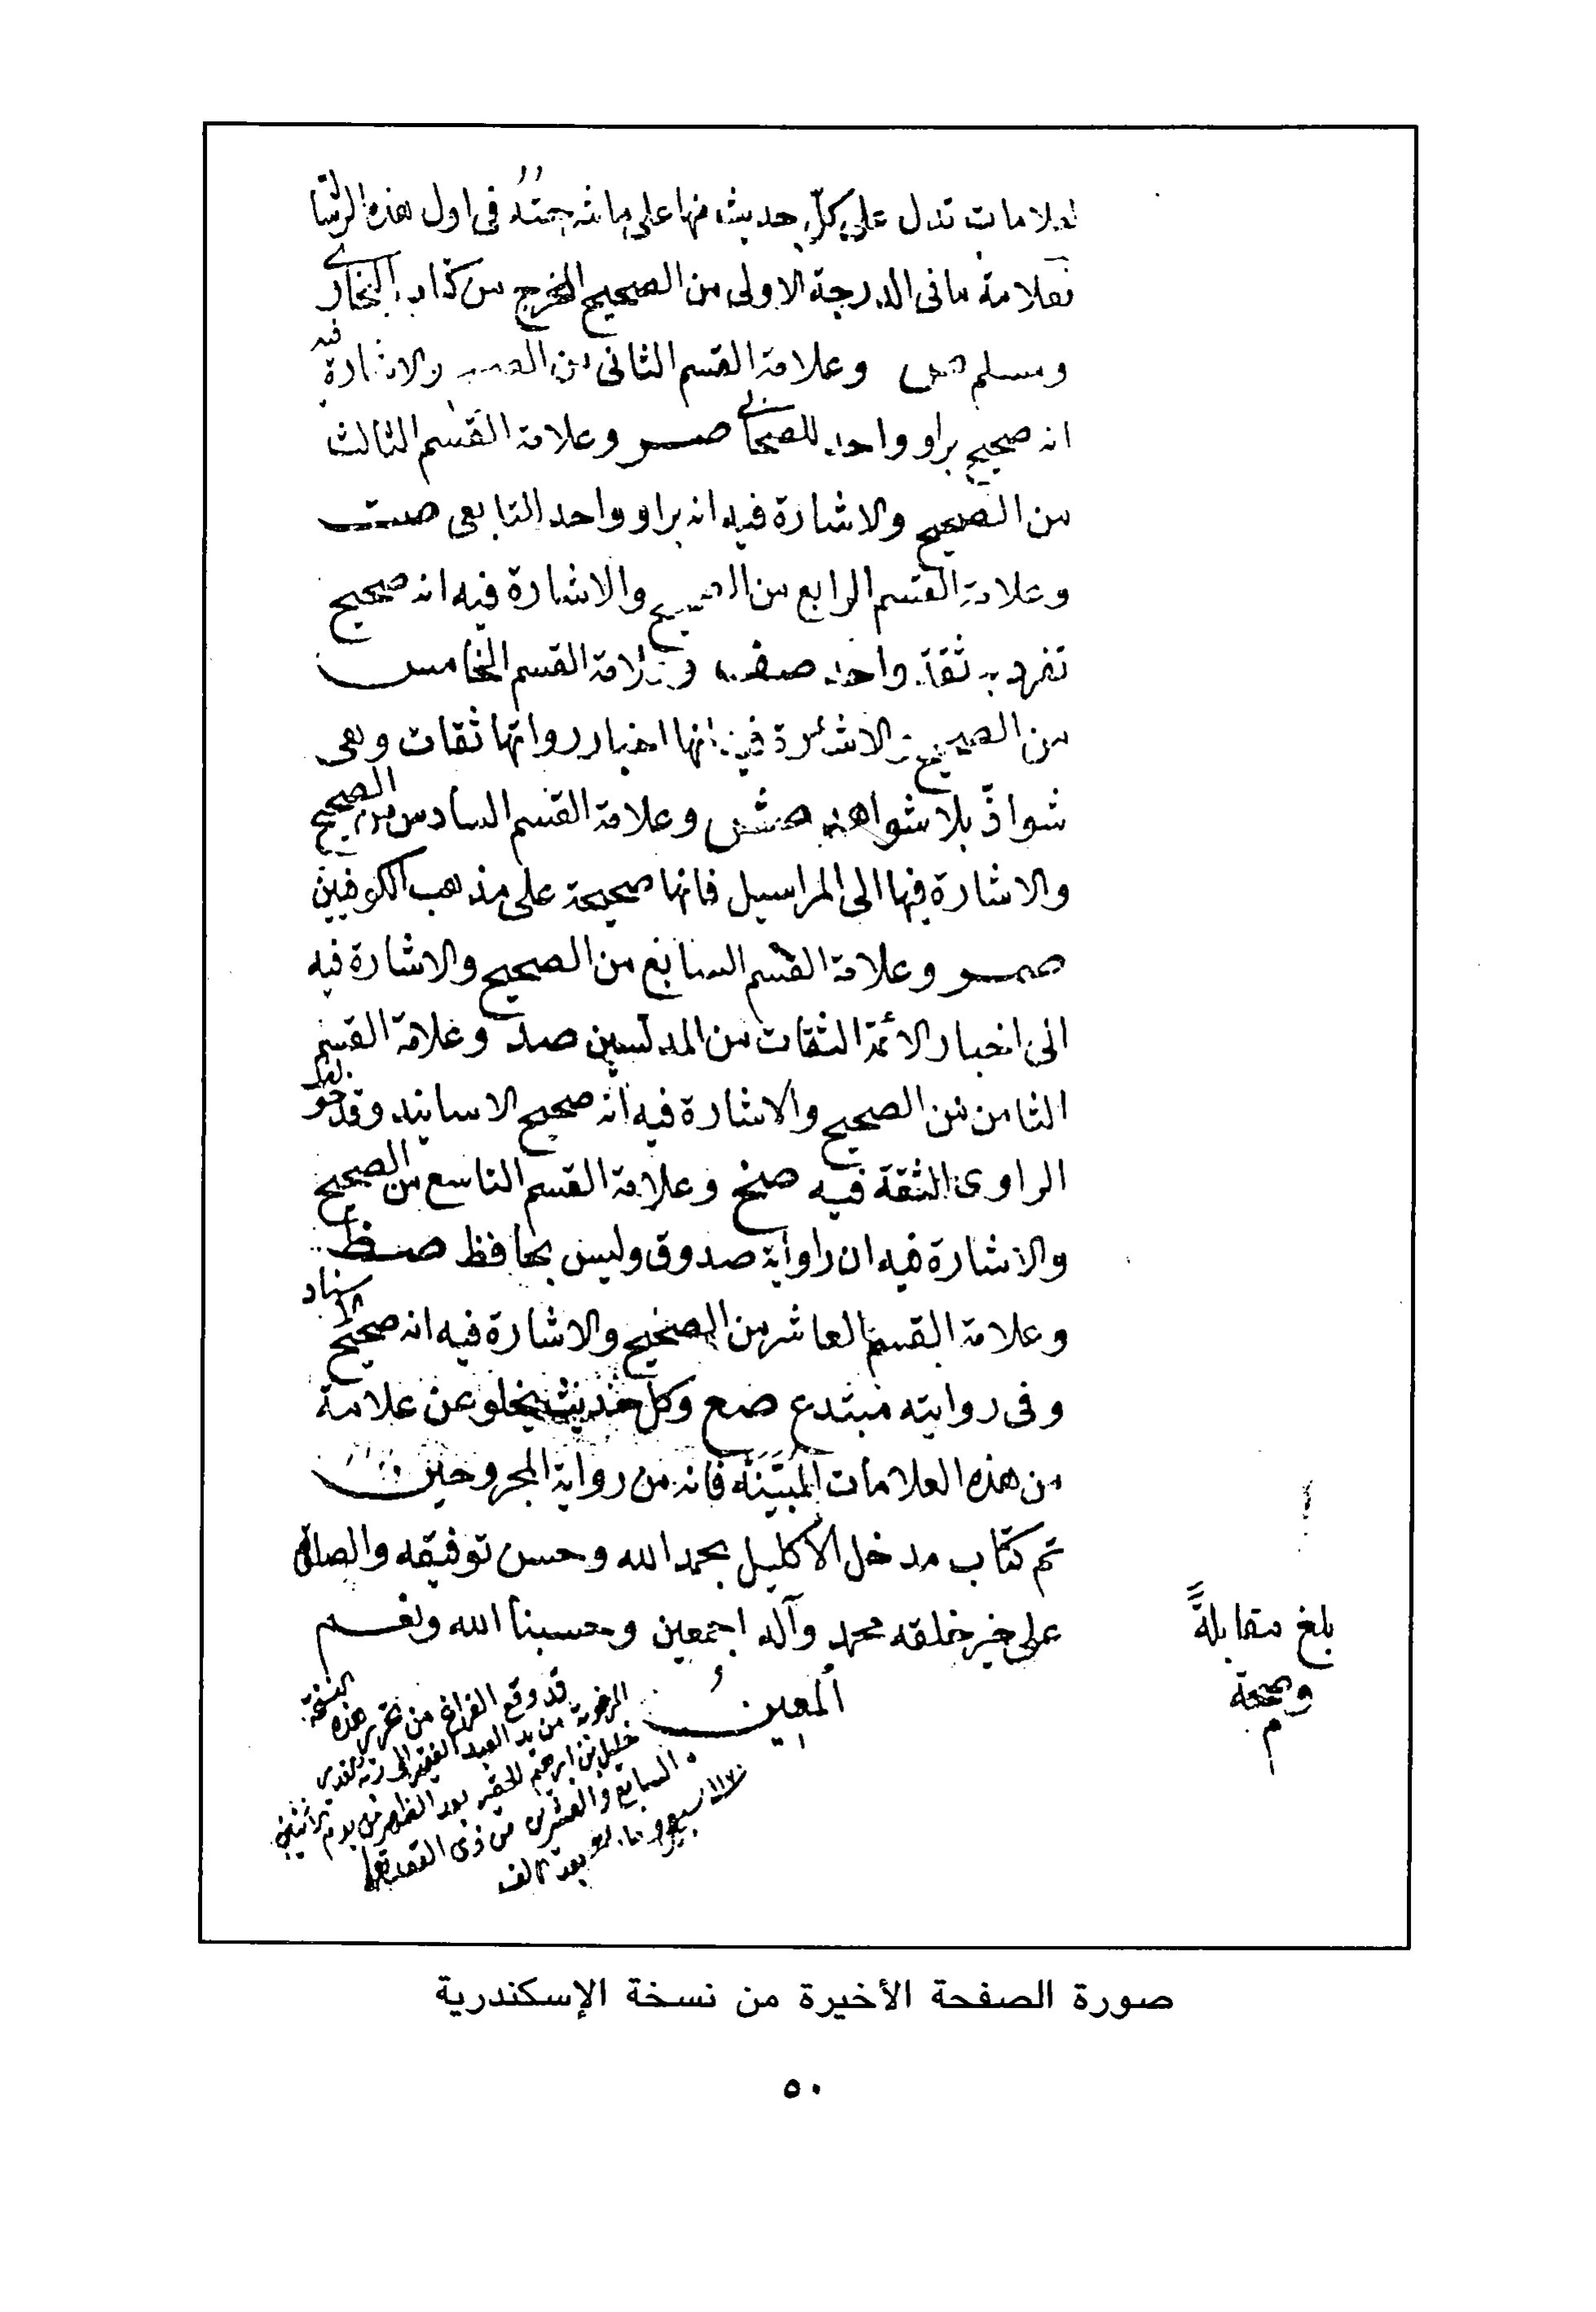 علامات تدل على كل حديث منها على ما شرحته فى اول هذه الرسا
فعلامة مافى الدرجة الاولى من الصحيح المخرج من كتاب البخارى
ومسلم وعلامة القسم الثانى من الصحيح والاشارة فيه
انه صحيح براو واحد للصحابى صــر وعلامة القسم الثالث
من الصحيح والاشارة فيه انه براو واحد التابعى صت
وعلامة القسم الرابع من الصحيح والاشارة فيه انه صحيح
تفرد به ثقة واحد صف وعلامة القسم الخامس
من الصحيح والاشارة فيه انها اخبار رواتها ثقات وهى
شواذّ بلا شواهد صش وعلامة القسم السادس من الصحيح
والاشارة فيها الى المراسيل فانها صحيحة على مذهب الكوفيين
صمر وعلامة القسم السابع من الصحيح والاشارة فيه
الى اخبار الائمة الثقات من المدلسين صد وعلامة القسم
الثامن من الصحيح والاشارة فيه انه صحيح الاسانيد وقد خولف
الراوى الثقة فيه صخ وعلامة القسم التاسع من الصحيح
والاشارة فيه ان راوايه صدوق وليس بحافظ صظ
وعلامة القسم العاشر من الصحيح والاشارة فيه انه صحيح الاسناد
وفى روايته مبتدع صع وكل حديث يخلو عن علامة
من هذه العلامات المبيّنة فانه من رواية المجروحين
تم كتاب مدخل الاكليل بحمد الله وحسن توفيقه والصلاة
على خير خلقه محمد وآله اجمعين وحسبنا الله ونعم
المعين
بلغ مقابلةً
وصححة
م
قد وقع الفراغ من تحرير هذه النسخة
المرغوبة من يد العبد الفقير الى ربه القدير
خليل بن ابرهيم الحقير بعد الظهر من يوم الاثنين
السابع والعشرين من ذى القعدة
١١٧٠ سبعين ومائة بعد الالف
صورة الصفحة الأخيرة من نسخة الإسكندرية
٥٠